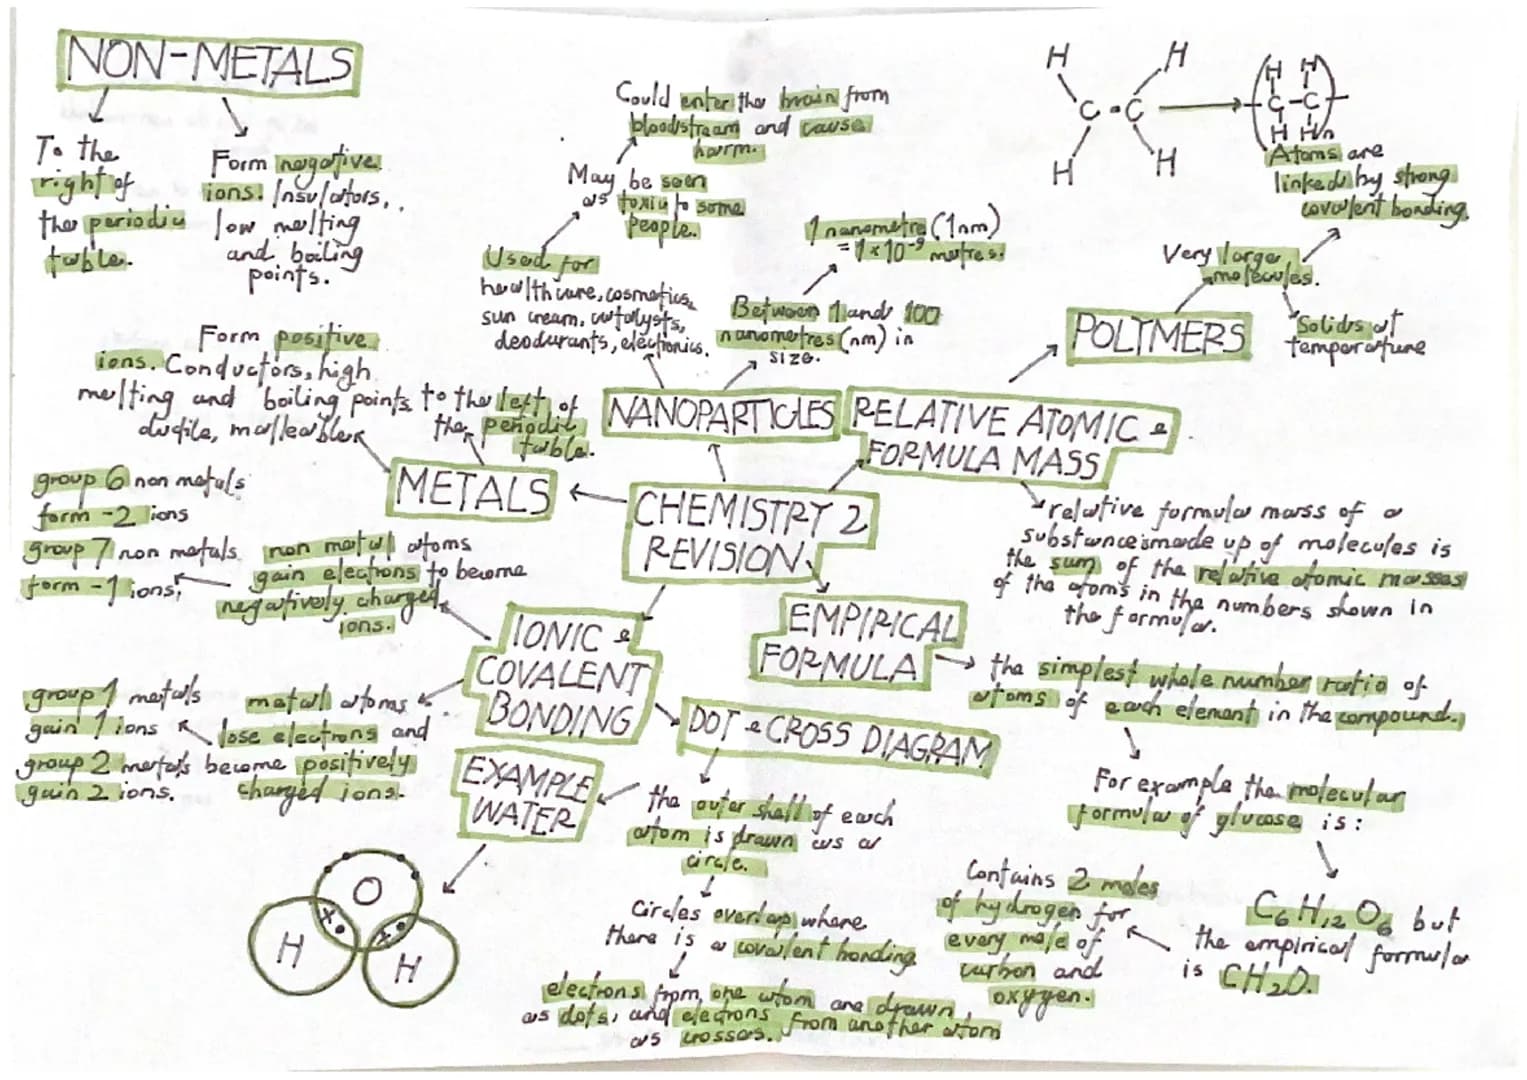 NON-METALS
To the
right of
the periodic
table.
Form negative
ions. Insulators,
low melting
and boiling
points.
Could enter the brain from
bloodstream and cause
harm.
May be seen
as toxic to some
people.
Used for
healthcare, cosmetics,
sun cream, catalysts,
deodurants, electronics.
1 nanometre (1nm)
= 1 x 10⁻⁹ metres.
Between 1 and 100
nanometres (nm) in
size.
H H
C C
H H
H H
C-C
H H n
Atoms are
linked by strong
covalent bonding.
Very large
molecules.
Solids at
temperature
POLYMERS
Form positive
ions. Conductors, high
melting and boiling points
ductile, malleable
to the left of
the periodic
table.
METALS
NANOPARTICLES
RELATIVE ATOMIC &
FORMULA MASS
CHEMISTRY 2
REVISION
relative formula mass of a
substance is made up of molecules is
the sum of the relative atomic masses
of the atoms in the numbers shown in
the formula.
group 6 non metals
form -2 ions
group 7 non metals
form -1 ions,
non metal atoms
gain electrons to become
negatively charged
ions.
IONIC &
COVALENT
BONDING
group 1 metals
gain 1 ions
group 2 metals
gain 2 ions.
metal atoms
lose electrons and
become positively
charged ions.
EMPIRICAL
FORMULA
the simplest whole number ratio of
atoms of each element in the compound.
For example the molecular
formula of glucose is:
C₆H₁₂O₆ but
the empirical formula
is CH₂O.
Contains 2 moles
of hydrogen for
every mole of
carbon and
oxygen.
DOT & CROSS DIAGRAM
the outer shell of each
atom is drawn as a
circle.
Circles overlap where
there is a covalent bonding
electrons from one atom are drawn
as dots, and electrons from another atom
as crosses.
EXAMPLE
WATER
O
x x
H H